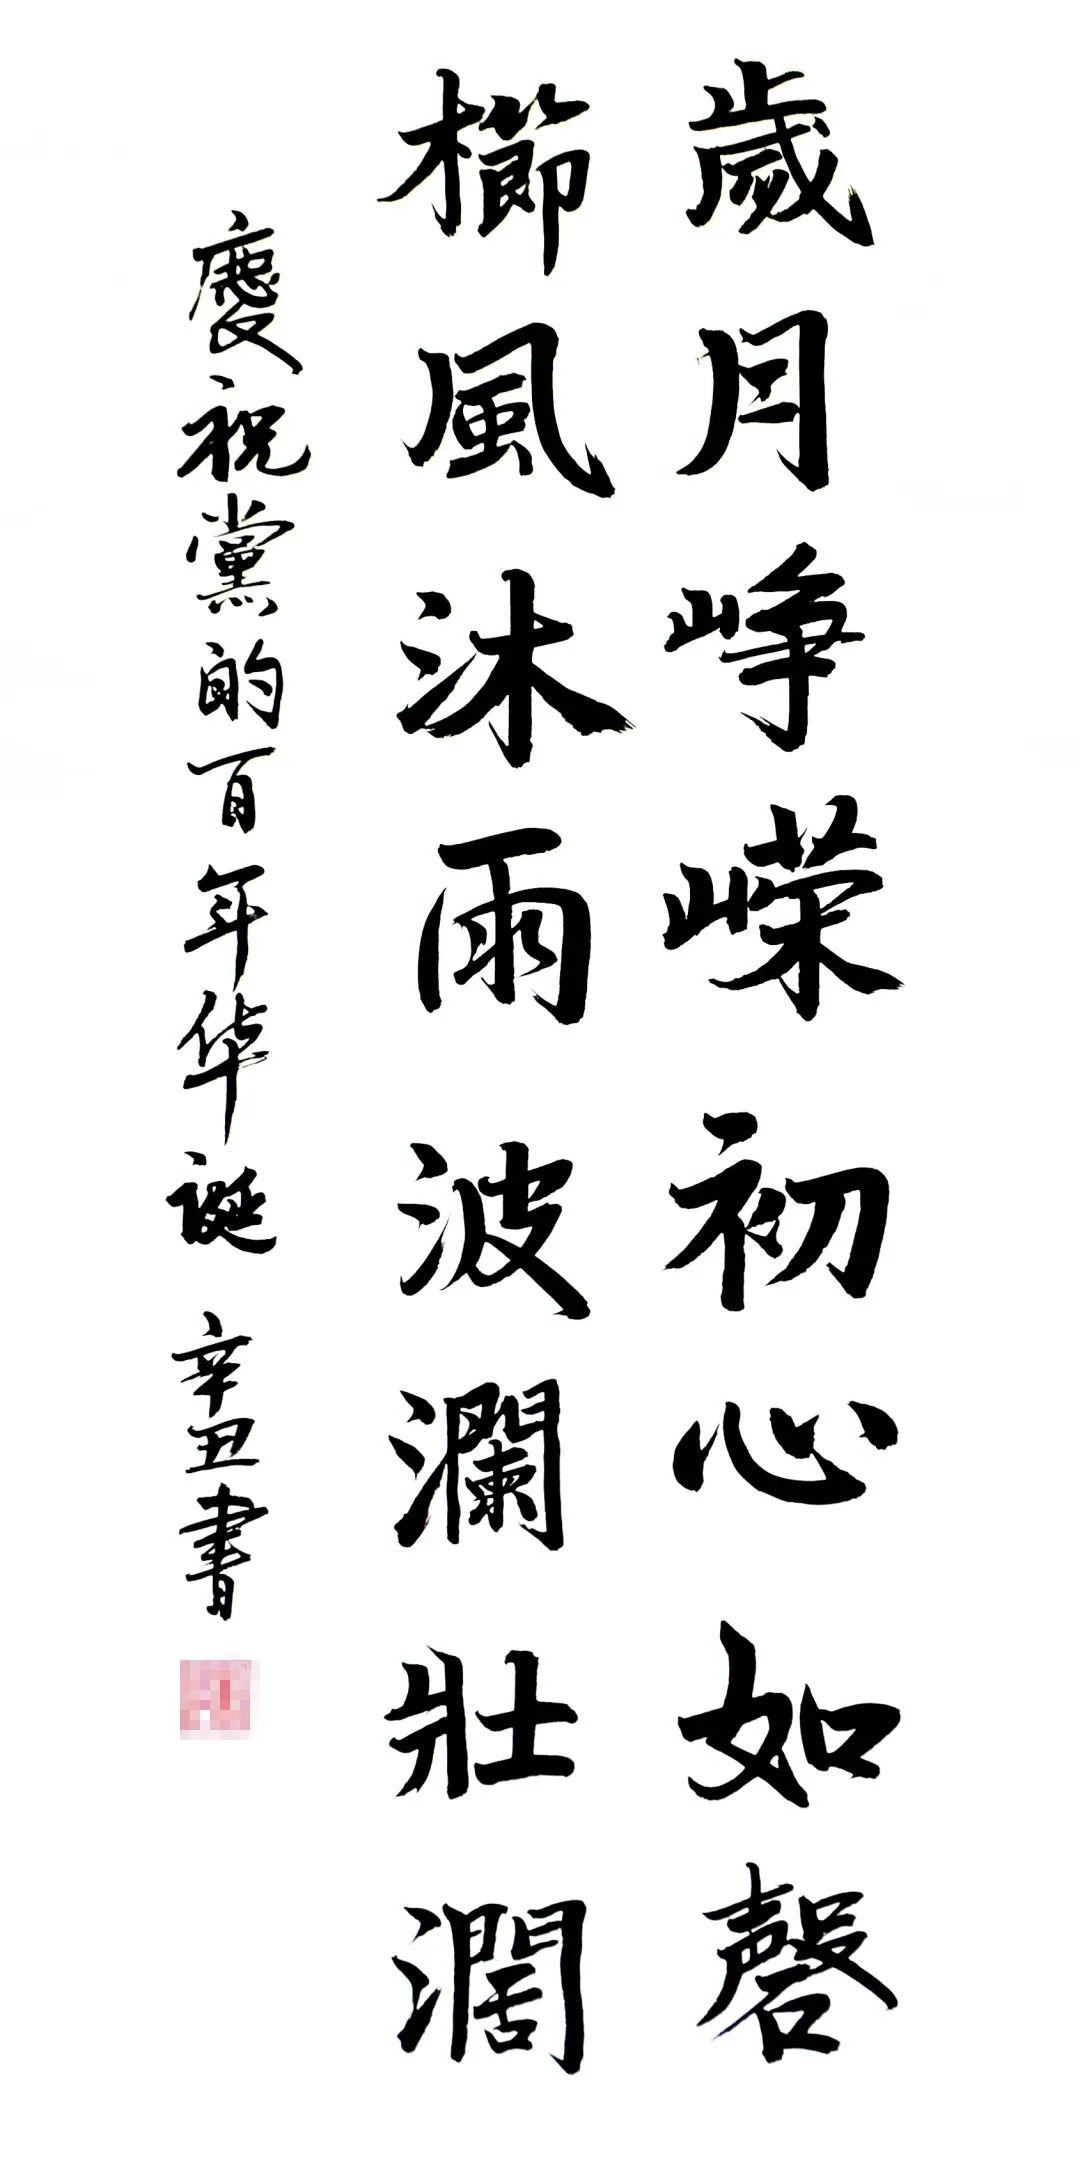 歲月崢嶸初心如磬
櫛風沐雨波瀾壯濶
慶祝黨的百年华誕 辛丑書